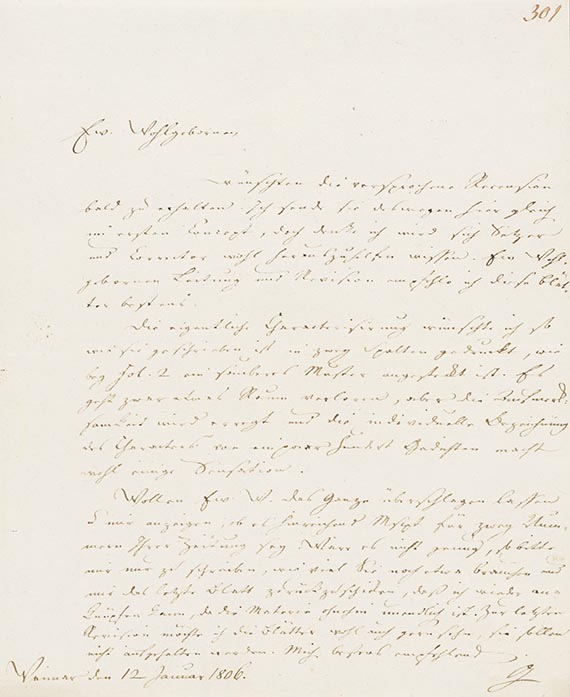 301
Ew. Wohlgebornen
wünschten die versprochene Recension
bald zu erhalten. Ich sende sie deswegen hier gleich
im ersten Concept, doch denke ich wird sich Setzer
und Corrector wohl herauszuhelfen wissen. Ew. Wohl-
gebornen Leitung und Revision empfehle ich diese Blät-
ter bestens.
Die eigentliche Characterisirung wünschte ich so
wie sie geschrieben ist in zwey Spalten gedruckt, wie
bey Fol. 2 ein sauberes Muster angesteckt ist. Es
geht zwar etwas Raum verloren, aber die Aufmerk-
samkeit wird erregt und die individuelle Bezeichnung
des Characters von ein paar hundert Gedichten macht
wohl einige Sensation.
Wollen Ew. W. das Ganze überschlagen lassen
u mir anzeigen, ob es hinreichend Mspt für zwey Num-
mern Ihrer Zeitung sey. Wäre es nicht genug, so bitte
mir nur zu schreiben, wie viel Sie noch etwa brauchen und
mir das letzte Blatt zurückzuschicken, daß ich wieder an-
knüpfen kann, da die Materie ohnehin unendlich ist. Zur letzten
Revision möchte ich die Blätter wohl auch gern sehn, sie sollen
nicht aufgehalten werden. Mich bestens empfehlend
Weimar den 12 Januar 1806.
G